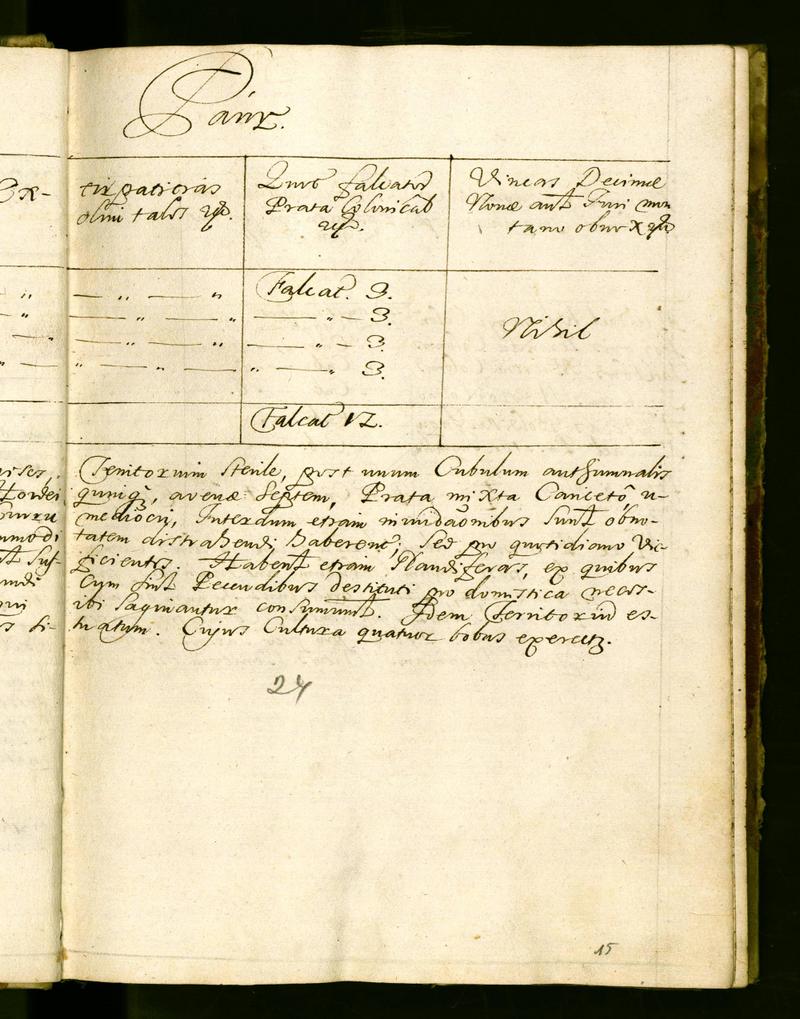 Paur.
Ex-
Quot Falcator
Prata Colonical
Vineas Decimæ
Nonæ aut Juri mon
tano obnox
Falcat. 3.
3.
3.
3.
Nihil
Falcat 12.
Territorium sterile, post unum Cubulum authumnalis
quinq, avenæ Septem, Prata mixta Canceto
mediocri, Interdum etiam inundaonibus Sunt obno-
tatem distrahendi haberent, Sed pro quotidiano Vic-
ficientes. Habent etiam Glandiferas, ex quibus
Cum sint Pecudibus destituti pro domestica neces-
ibi Saginantur consumunt. Idem Territoriũ es-
tuatum. Cujus Cultura quatuor bobus exercetz.
24
15